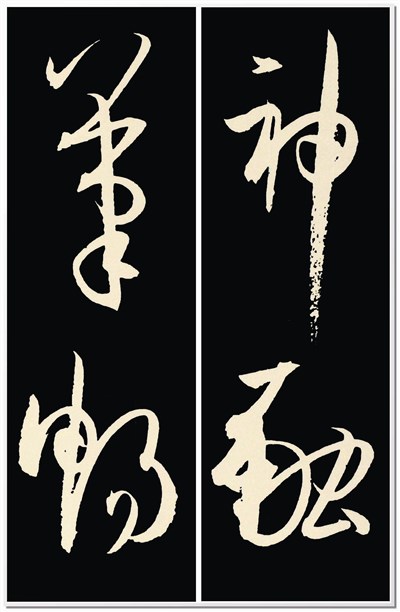 神融
筆暢